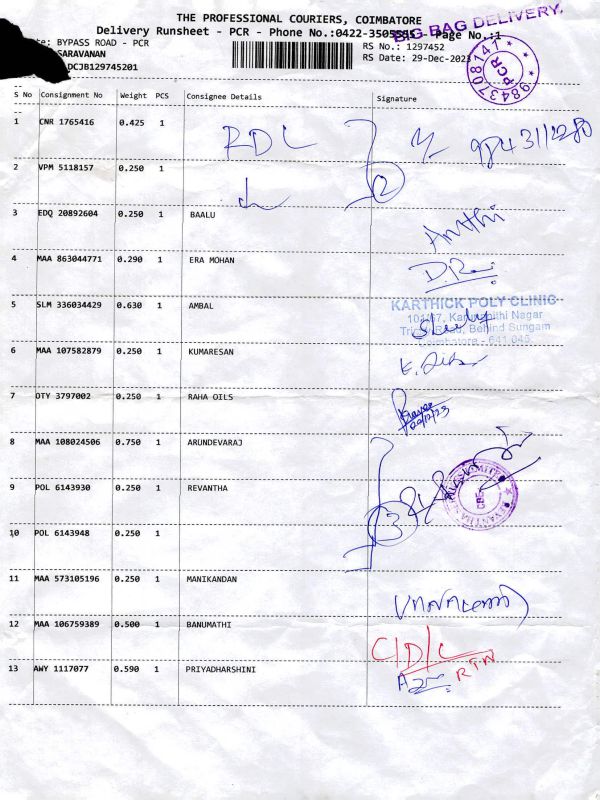 THE PROFESSIONAL COURIERS, COIMBATORE
BIG-BAG DELIVERY.
Delivery Runsheet - PCR - Phone No.:0422-3505585 Page No.:1
BYPASS ROAD - PCR
RS No.: 1297452
SARAVANAN
RS Date: 29-Dec-2023
DCJB129745201
PCR
9843708141
S No Consignment No Weight PCS Consignee Details Signature
1 CNR 1765416 0.425 1 RDL
2 VPM 5118157 0.250 1 2
3 EDQ 20892604 0.250 1 BAALU
4 MAA 863044771 0.290 1 ERA MOHAN
KARTHICK POLY CLINIC
5 SLM 336034429 0.630 1 AMBAL
Coimbatore - 641 045
6 MAA 107582879 0.250 1 KUMARESAN
7 OTY 3797002 0.250 1 RAHA OILS
8 MAA 108024506 0.750 1 ARUNDEVARAJ
9 POL 6143930 0.250 1 REVANTHA
10 POL 6143948 0.250 1 3
11 MAA 573105196 0.250 1 MANIKANDAN
12 MAA 106759389 0.500 1 BANUMATHI
C/D/L
13 AWY 1117077 0.590 1 PRIYADHARSHINI
RTN